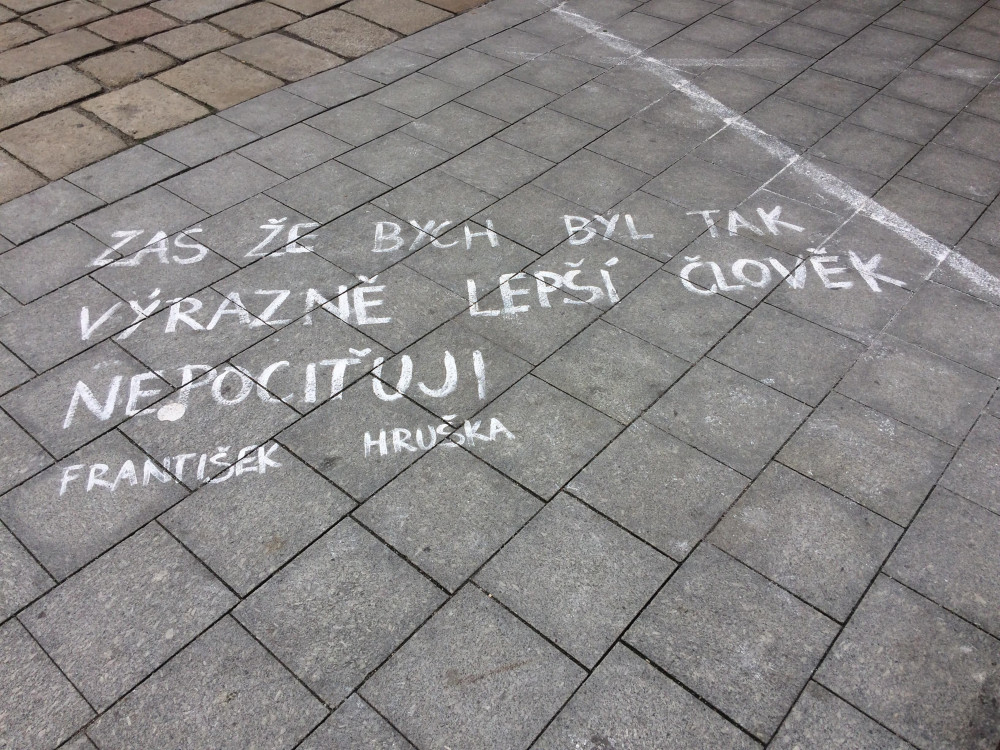 ZAS ŽE BYCH BYL TAK
VÝRAZNĚ LEPŠÍ ČLOVĚK
NEPOCIŤUJI
FRANTIŠEK HRUŠKA